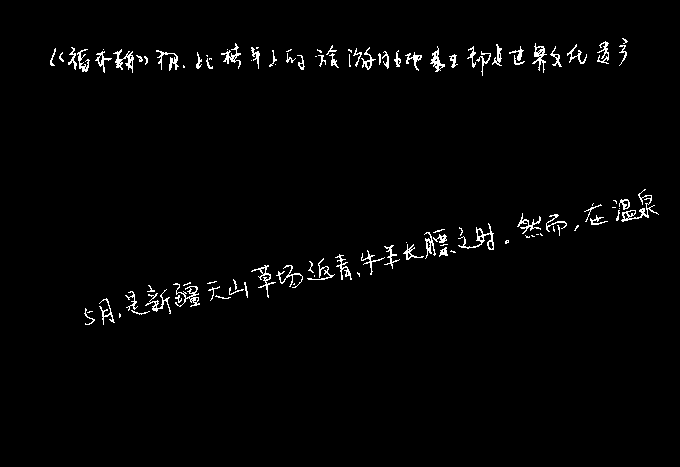 《福布斯》称,此榜单上的旅游胜地基本都是世界文化遗产
5月,是新疆天山草场返青、牛羊长膘之时。然而,在温泉